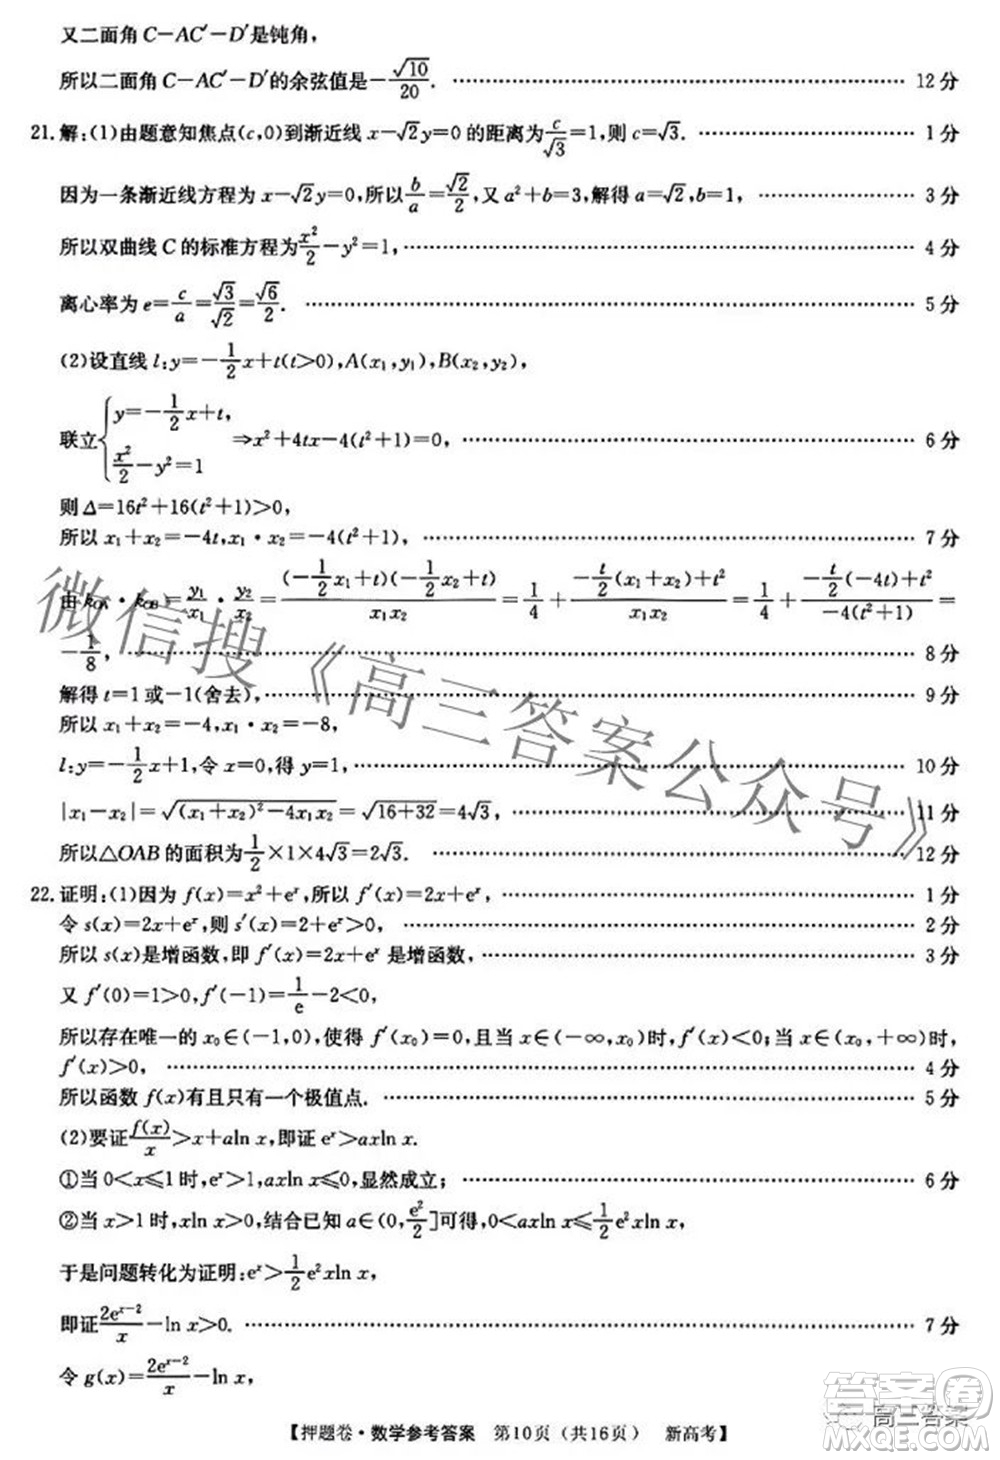 又二面角 C-AC′-D′是钝角,
所以二面角 C-AC′-D′的余弦值是-√10/20. 12 分
21. 解:(1)由题意知焦点(c,0)到渐近线 x-√2y=0 的距离为c/√3=1,则 c=√3. 1 分
因为一条渐近线方程为 x-√2y=0,所以b/a=√2/2,又 a²+b²=3,解得 a=√2,b=1, 3 分
所以双曲线 C 的标准方程为x²/2-y²=1, 4 分
离心率为 e=c/a=√3/√2=√6/2. 5 分
(2)设直线 l:y=-1/2x+t(t>0),A(x₁,y₁),B(x₂,y₂),
联立{y=-1/2x+t, x²/2-y²=1 ⇒x²+4tx-4(t²+1)=0, 6 分
则 Δ=16t²+16(t²+1)>0,
所以 x₁+x₂=-4t,x₁·x₂=-4(t²+1), 7 分
由 k_OA·k_OB=y₁/x₁·y₂/x₂=(-1/2x₁+t)(-1/2x₂+t)/x₁x₂=1/4+(-t/2(x₁+x₂)+t²)/x₁x₂=1/4+(-t/2(-4t)+t²)/-4(t²+1)=
-1/8, 8 分
解得 t=1 或-1(舍去), 9 分
所以 x₁+x₂=-4,x₁·x₂=-8,
l:y=-1/2x+1,令 x=0,得 y=1, 10 分
|x₁-x₂|=√((x₁+x₂)²-4x₁x₂)=√(16+32)=4√3, 11 分
所以△OAB 的面积为1/2×1×4√3=2√3. 12 分
22. 证明:(1)因为 f(x)=x²+eˣ,所以 f′(x)=2x+eˣ, 1 分
令 s(x)=2x+eˣ,则 s′(x)=2+eˣ>0, 2 分
所以 s(x)是增函数,即 f′(x)=2x+eˣ 是增函数, 3 分
又 f′(0)=1>0,f′(-1)=1/e-2<0,
所以存在唯一的 x₀∈(-1,0),使得 f′(x₀)=0,且当 x∈(-∞,x₀)时,f′(x)<0;当 x∈(x₀,+∞)时,
f′(x)>0, 4 分
所以函数 f(x)有且只有一个极值点. 5 分
(2)要证f(x)/x>x+aln x,即证 eˣ>axln x.
①当 0<x≤1 时,eˣ>1,axln x≤0,显然成立; 6 分
②当 x>1 时,xln x>0,结合已知 a∈(0,e²/2]可得,0<axln x≤1/2e²xln x,
于是问题转化为证明:eˣ>1/2e²xln x,
即证2eˣ⁻²/x-ln x>0. 7 分
令 g(x)=2eˣ⁻²/x-ln x,
【押题卷·数学参考答案 第10页（共16页） 新高考】
微信搜《高三答案公众号》
答案圈
高三答案
MXQE.COM